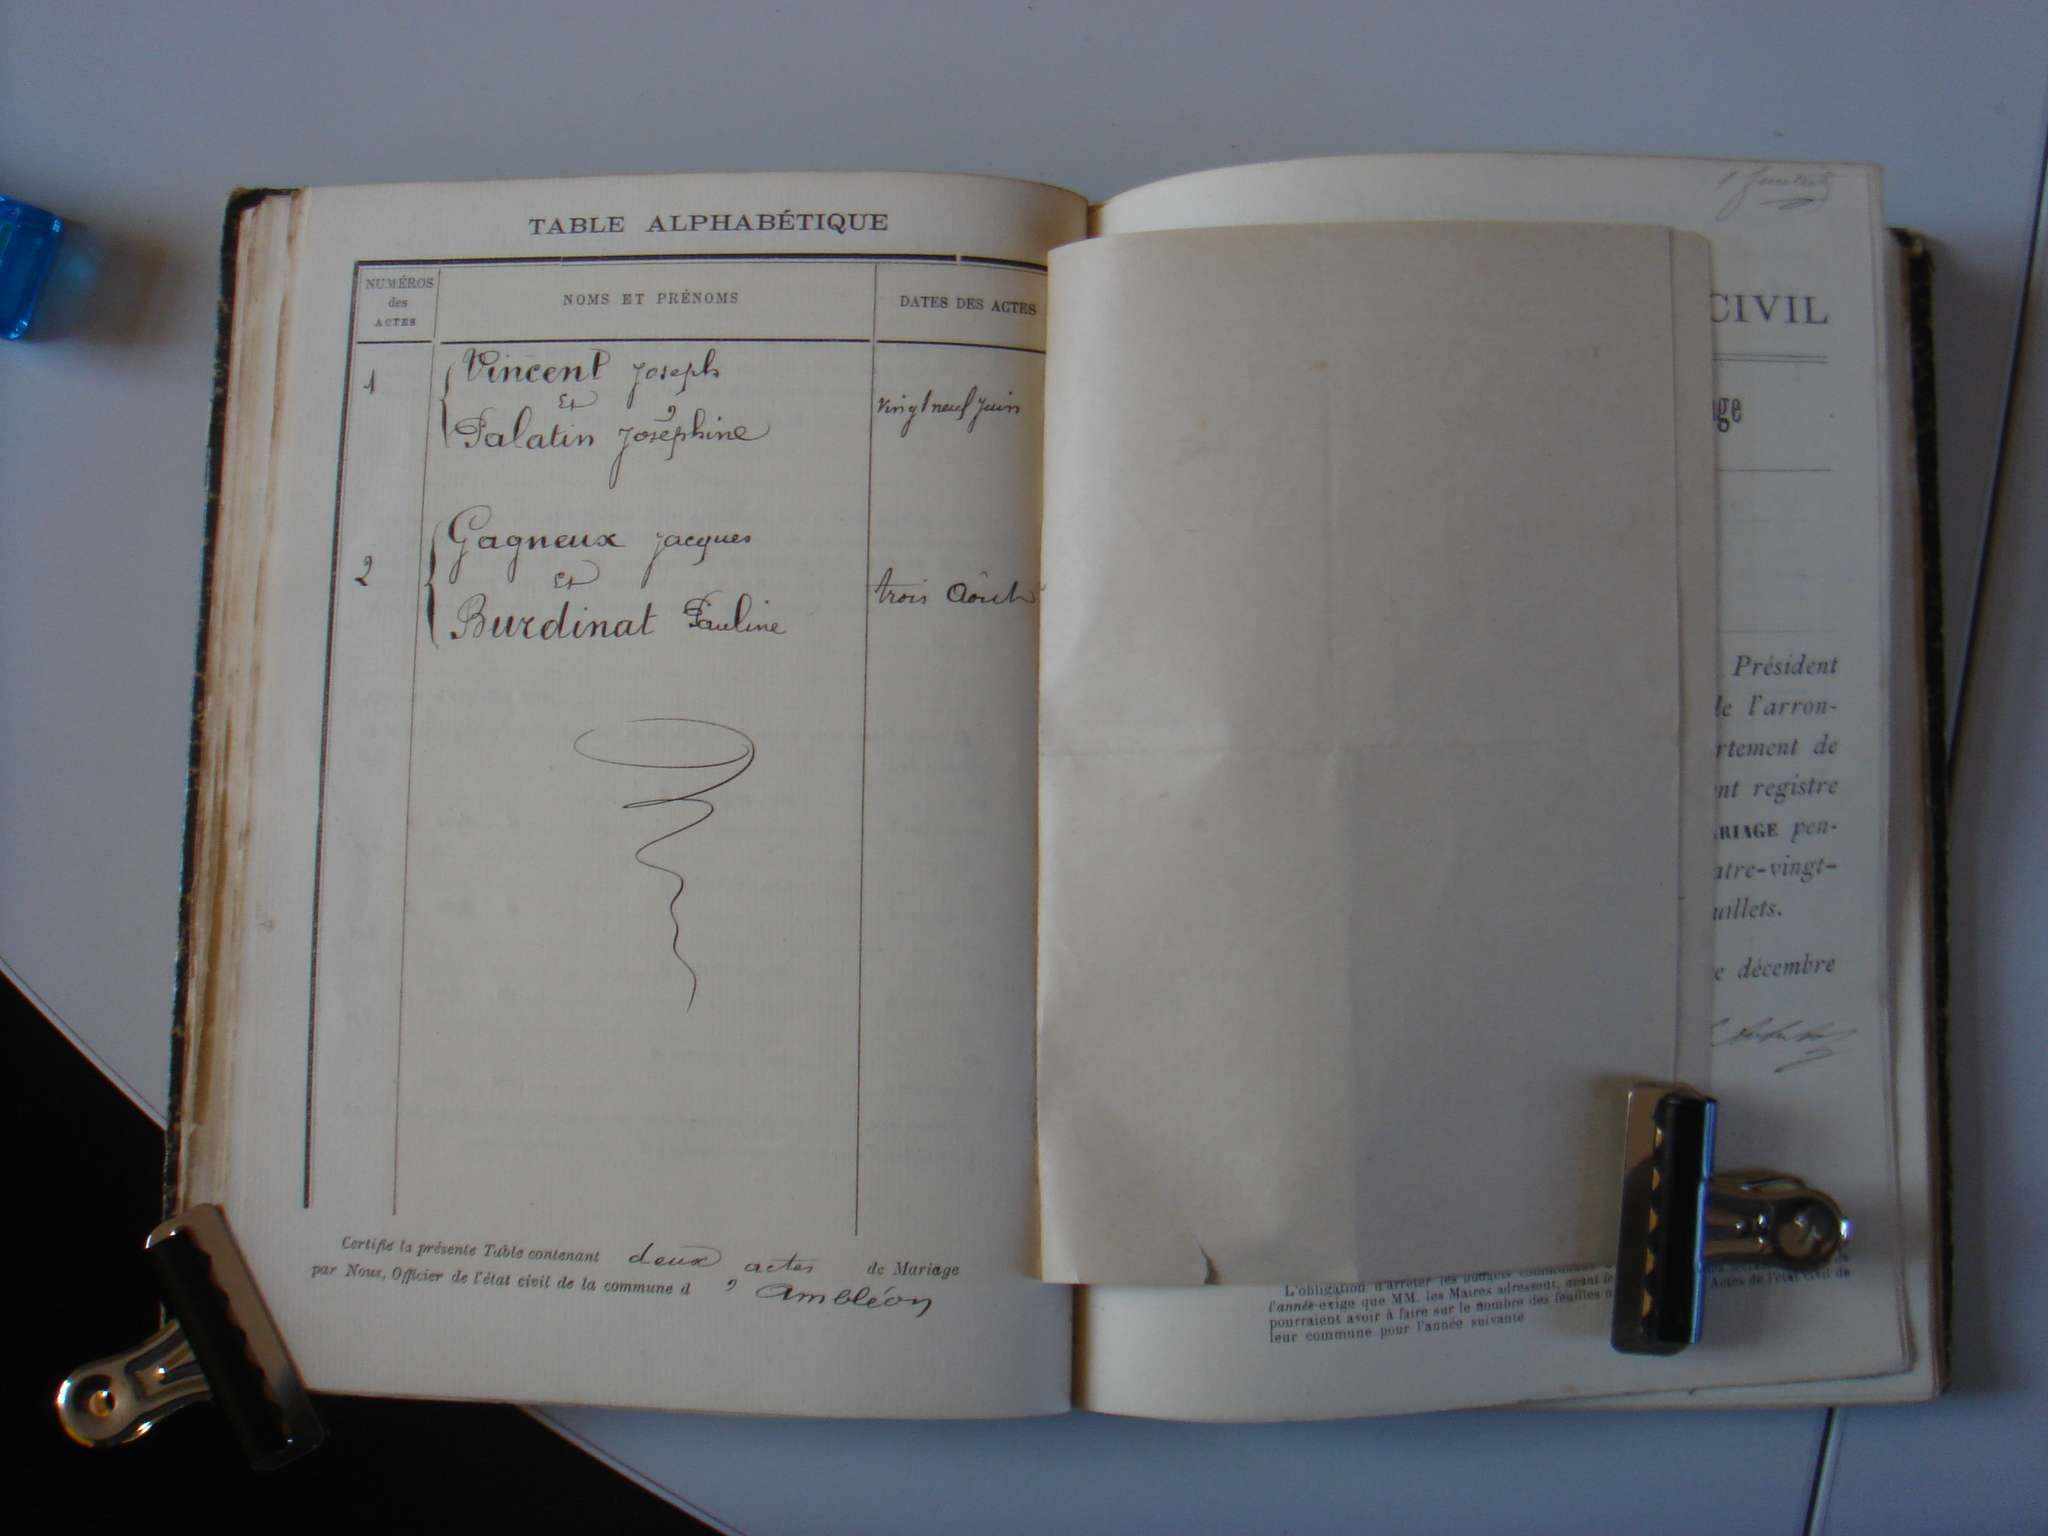 TABLE ALPHABÉTIQUE
NUMÉROS
des
ACTES
NOMS ET PRÉNOMS
DATES DES ACTES
1
Vincent Joseph
et
Palatin Joséphine
vingt neuf juin
2
Gagneux Jacques
et
Burdinat Pauline
trois Août
Certifié la présente Table contenant deux actes de Mariage
par Nous, Officier de l'état civil de la commune d' Ambléon
CIVIL
age
Président
de l'arron-
rtement de
nt registre
RIAGE pen-
atre-vingt-
uillets.
e décembre
L'obligation d'arrêter les budgets
l'année exige que MM. les Maires adressent, avant le Actes de l'état civil de
pourraient avoir à faire sur le nombre des feuilles
leur commune pour l'année suivante